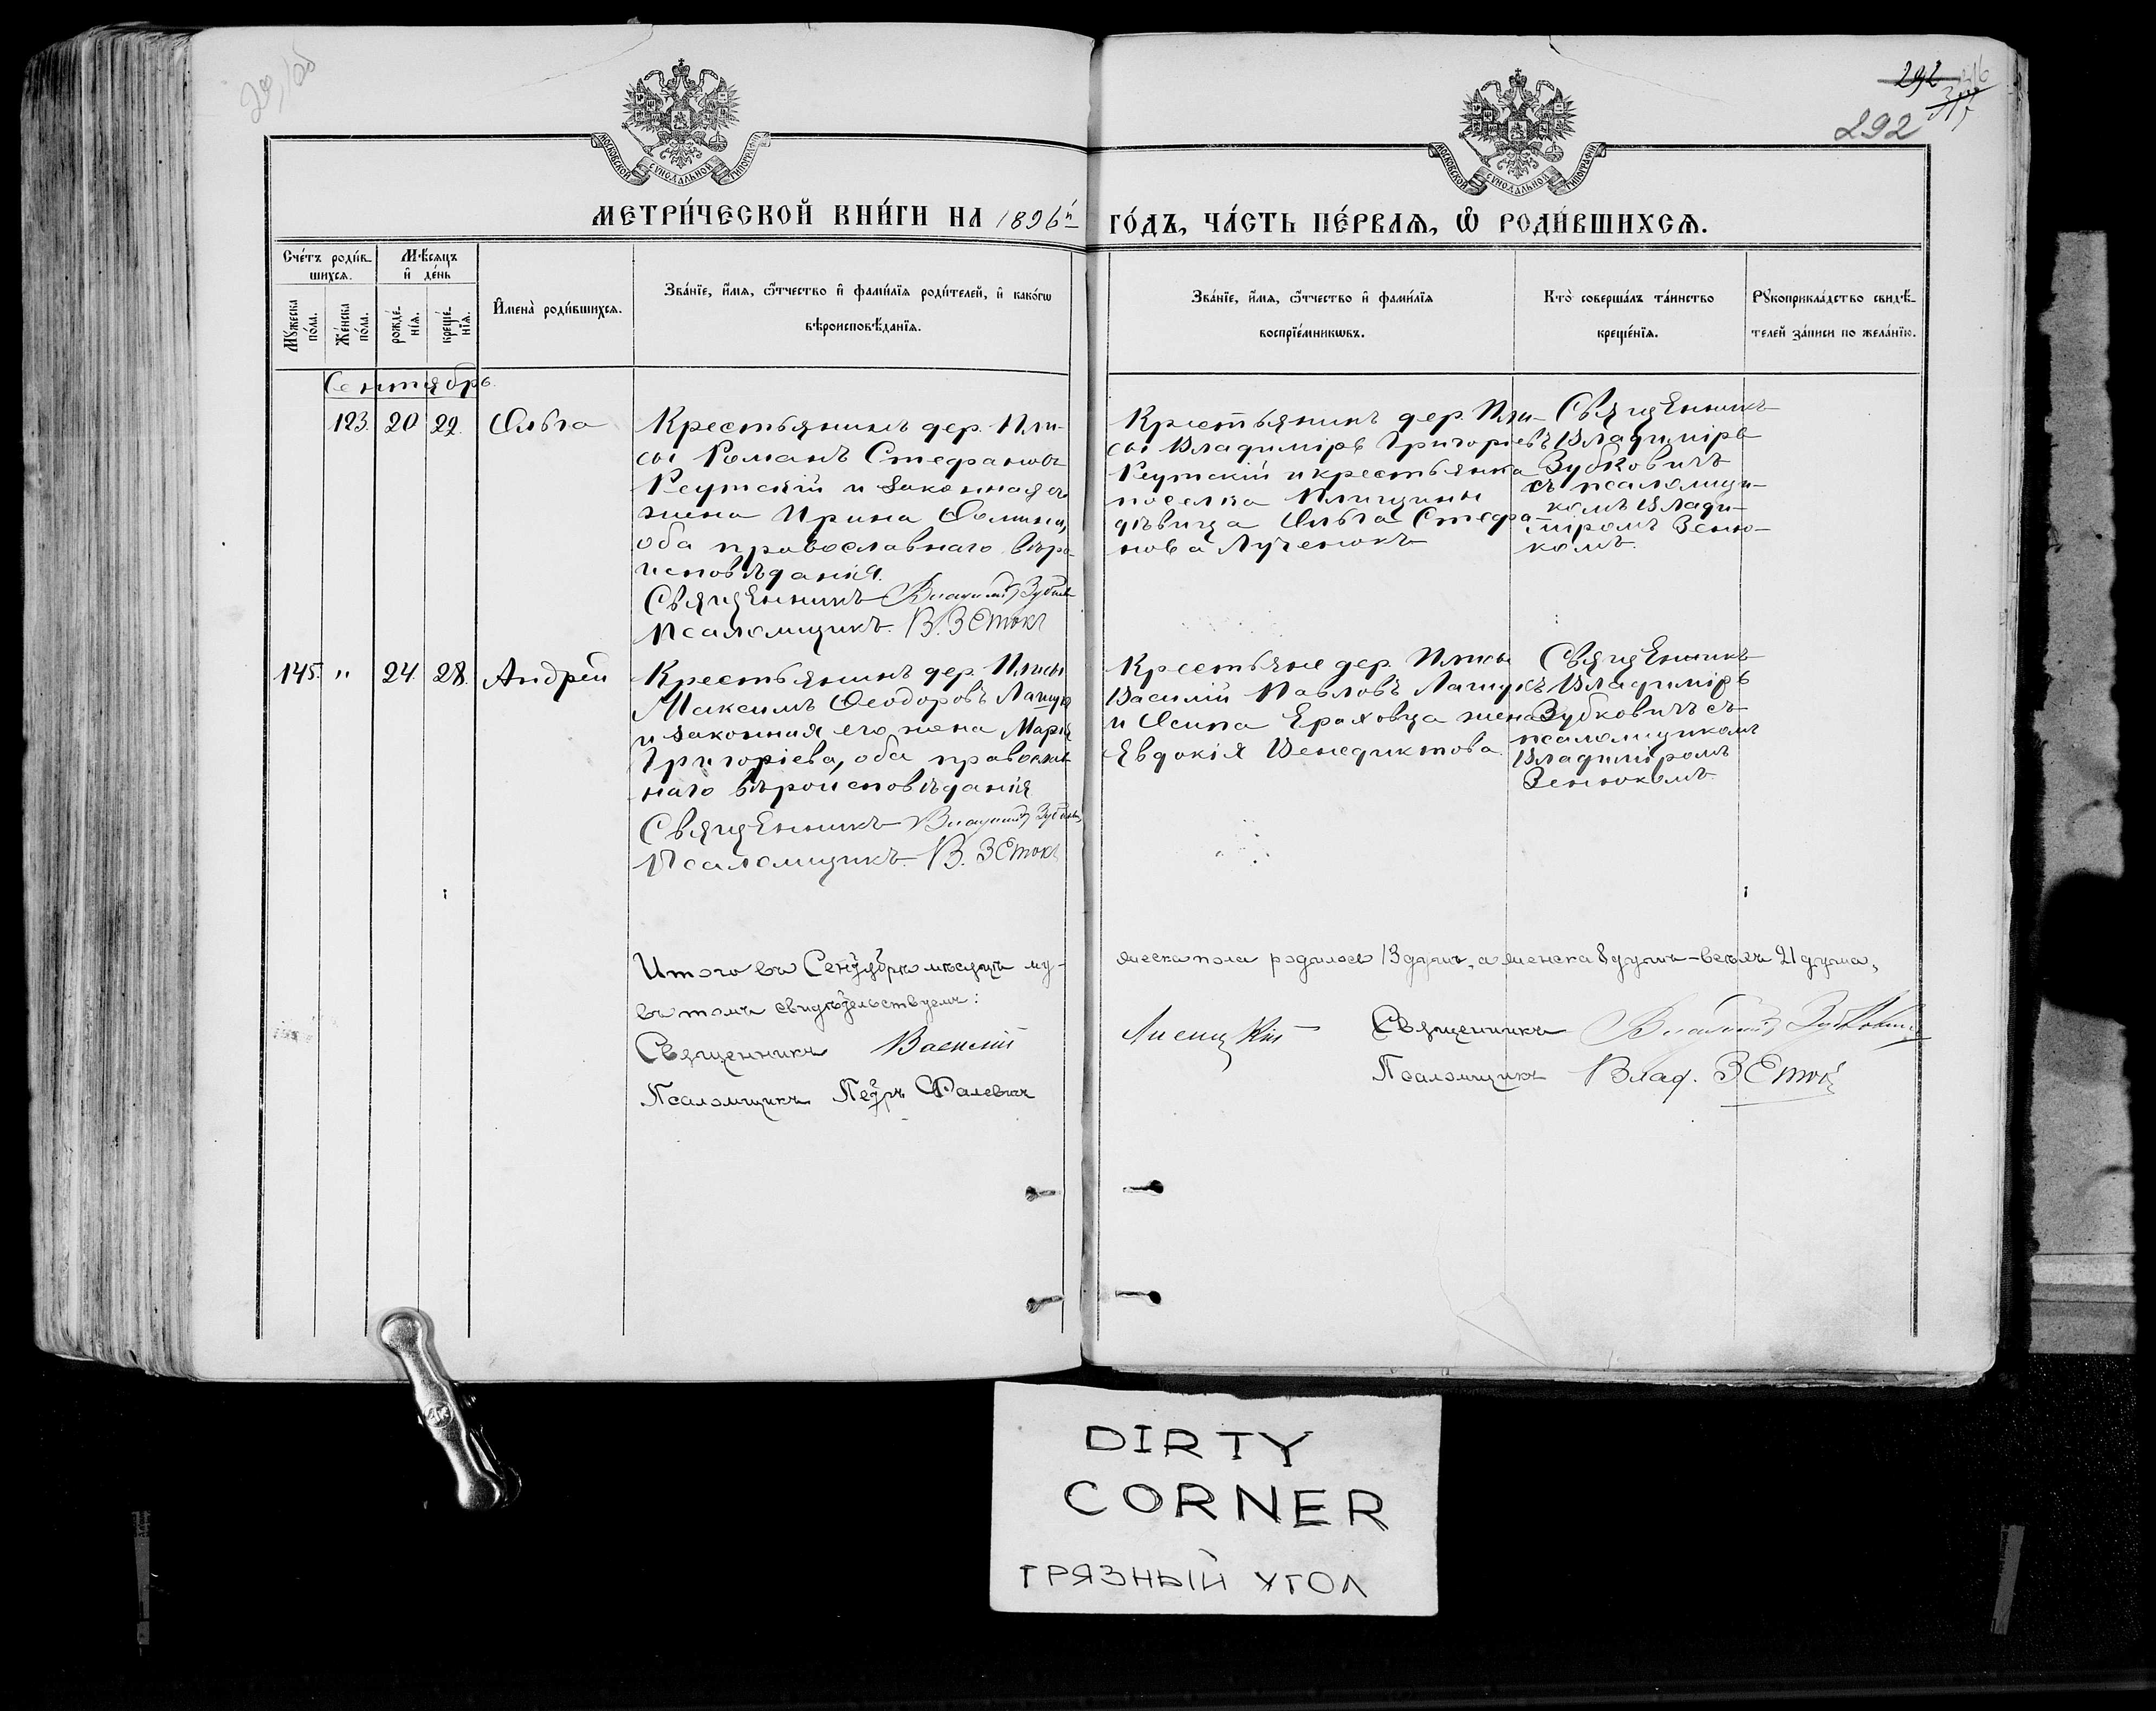 292
292
МОСКОВСКОЙ СУНОДАЛЬНОЙ ТИПОГРАФІИ
МОСКОВСКОЙ СУНОДАЛЬНОЙ ТИПОГРАФІИ
МЕТРИ́ЧЕСКОЙ КНИ́ГИ НА 1896й
ГО́ДЪ, ЧА́СТЬ ПЕ́РВАѦ, Ѡ҆ РОДИ́ВШИХСѦ.
Сче́тъ роди́в-
шихсѧ.
Мѣ́сѧцъ
и҆ де́нь
Мꙋ́жеска
по́ла.
Же́нска
по́ла.
рожде́-
нїѧ.
креще́-
нїѧ.
И҆мена̀ роди́вшихсѧ.
Зва́нїе, и҆́мѧ, ѻ҆́тчество и҆ фами́лїѧ роди́телей, и҆ како́гѡ
вѣроисповѣ́данїѧ.
Зва́нїе, и҆́мѧ, ѻ҆́тчество и҆ фами́лїѧ
воспрїе́мникѡвъ.
Кто̀ соверша́лъ та́инство
креще́нїѧ.
Рꙋкоприкла́дство свидѣ́-
телей за́писи по жела́нїю.
Сентябрь.
123. 20 22. Ольга
Крестьянинъ дер. Пли-
сы Романъ Стефановъ
Реутскій и законная его
жена Ирина Фомина,
оба православнаго вѣро-
исповѣданія.
Священникъ Владимір Зубков
Псаломщикъ В. Зенюкъ
Крестьянинъ дер. Пли-
сы Владиміръ Григорьевъ
Реутскій и крестьянка
поселка Плищины
дѣвица Ольга Стефа-
нова Лученокъ
Священникъ
Владиміръ
Зубковичъ
съ псаломщи-
комъ Влади-
міромъ Зеню-
комъ.
145. " 24. 28. Андрей
Крестьянинъ дер. Плисы
Максимъ Феодоровъ Лащук
и законная его жена Марія
Григоріева, оба православ-
наго вѣроисповѣданія
Священникъ Владимір Зубков
Псаломщикъ В. Зенюкъ
Крестьяне дер. Плисы
Василій Павловъ Лащукъ
и Осипа Ераховца жена
Евдокія Венедиктова.
Священникъ
Владиміръ
Зубковичъ съ
псаломщикомъ
Владиміромъ
Зенюкомъ
Итого въ Сентябрѣ мѣсяцѣ му-
жеска пола родилось 13 душъ, а женска 8 душъ – всѣхъ 21 душа,
въ томъ свидѣтельствуемъ:
Священникъ Василій Лисицкій
Священникъ Владимір Зубкович
Псаломщикъ Петръ Фалевич
Псаломщикъ Влад. Зенюкъ
DIRTY
CORNER
ГРЯЗНЫЙ УГОЛ